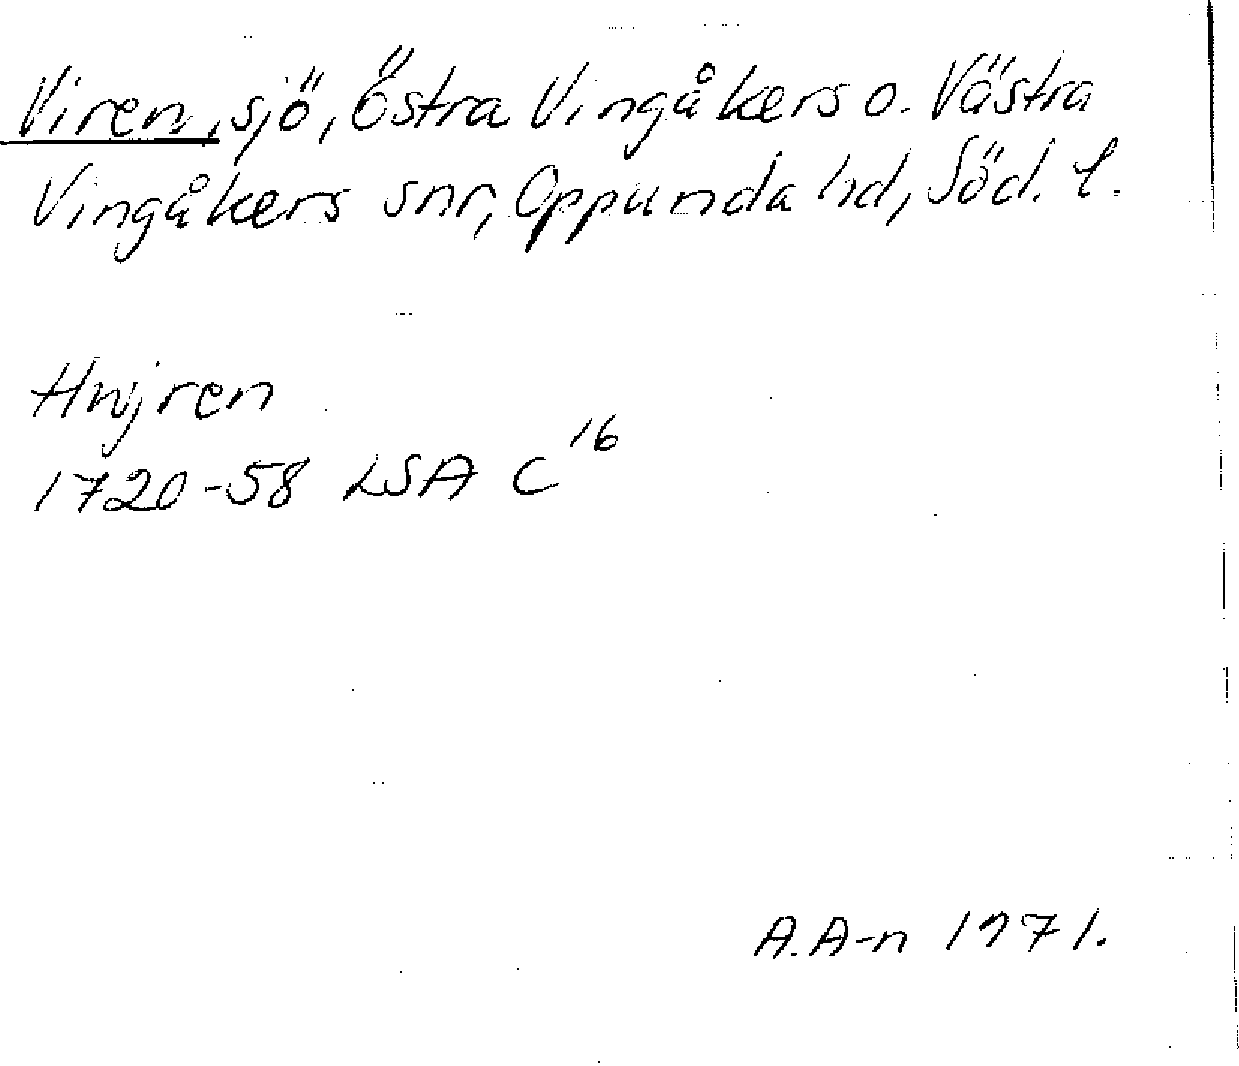 Viren, sjö, Östra Vingåkers o. Västra
Vingåkers snr, Oppunda hd, Söd. l.
Hwjren
1720-58 LSA C 16
A.A-n 1971.